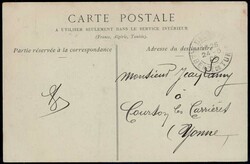 CARTE POSTALE
A UTILISER SEULEMENT DANS LE SERVICE INTÉRIEUR
(France, Algérie, Tunisie)
Partie réservée à la correspondance
Adresse du destinataire
Monsieur
à
Courson les Carrières
Yonne